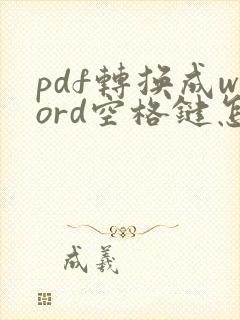 pdf轉換成w
ord空格鍵怎
成義